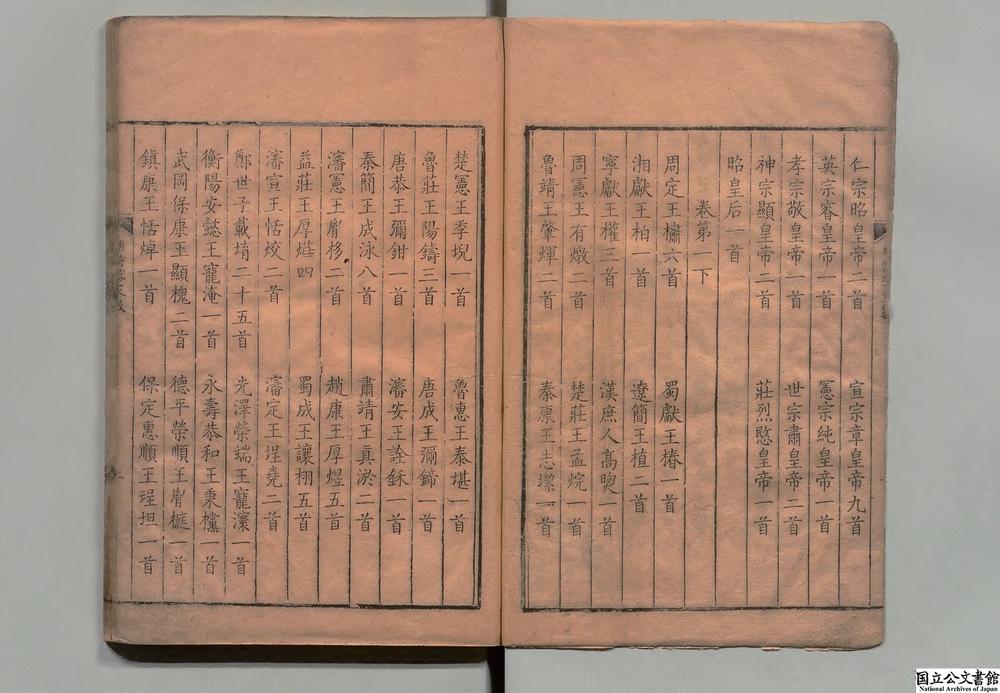 仁宗昭皇帝二首 宣宗章皇帝九首
英宗睿皇帝一首 憲宗純皇帝一首
孝宗敬皇帝一首 世宗肅皇帝二首
神宗顯皇帝二首 莊烈愍皇帝一首
昭皇后一首
卷第一下
周定王橚六首 蜀獻王椿一首
湘獻王柏一首 遼簡王植二首
寧獻王權三首 漢庶人高煦一首
周憲王有燉二首 楚莊王孟烷一首
魯靖王肇煇二首 秦康王志 一首
楚憲王季堄一首 魯惠王泰堪一首
魯莊王陽鑄三首 唐成王彌鍗一首
唐恭王彌鉗一首 瀋安王詮鉌一首
秦簡王成泳八首 肅靖王真淤二首
瀋憲王胤栘二首 趙康王厚煜五首
益莊王厚燁四 蜀成王讓栩五首
瀋宣王恬烄二首 瀋定王珵堯二首
鄭世子載堉二十五首 光澤榮端王寵瀤一首
衡陽安懿王寵淹一首 永壽恭和王秉欓一首
武岡保康王顯槐二首 德平榮順王胤榳一首
鎮康王恬焯一首 保定惠順王珵坦一首
国立公文書館
National Archives of Japan